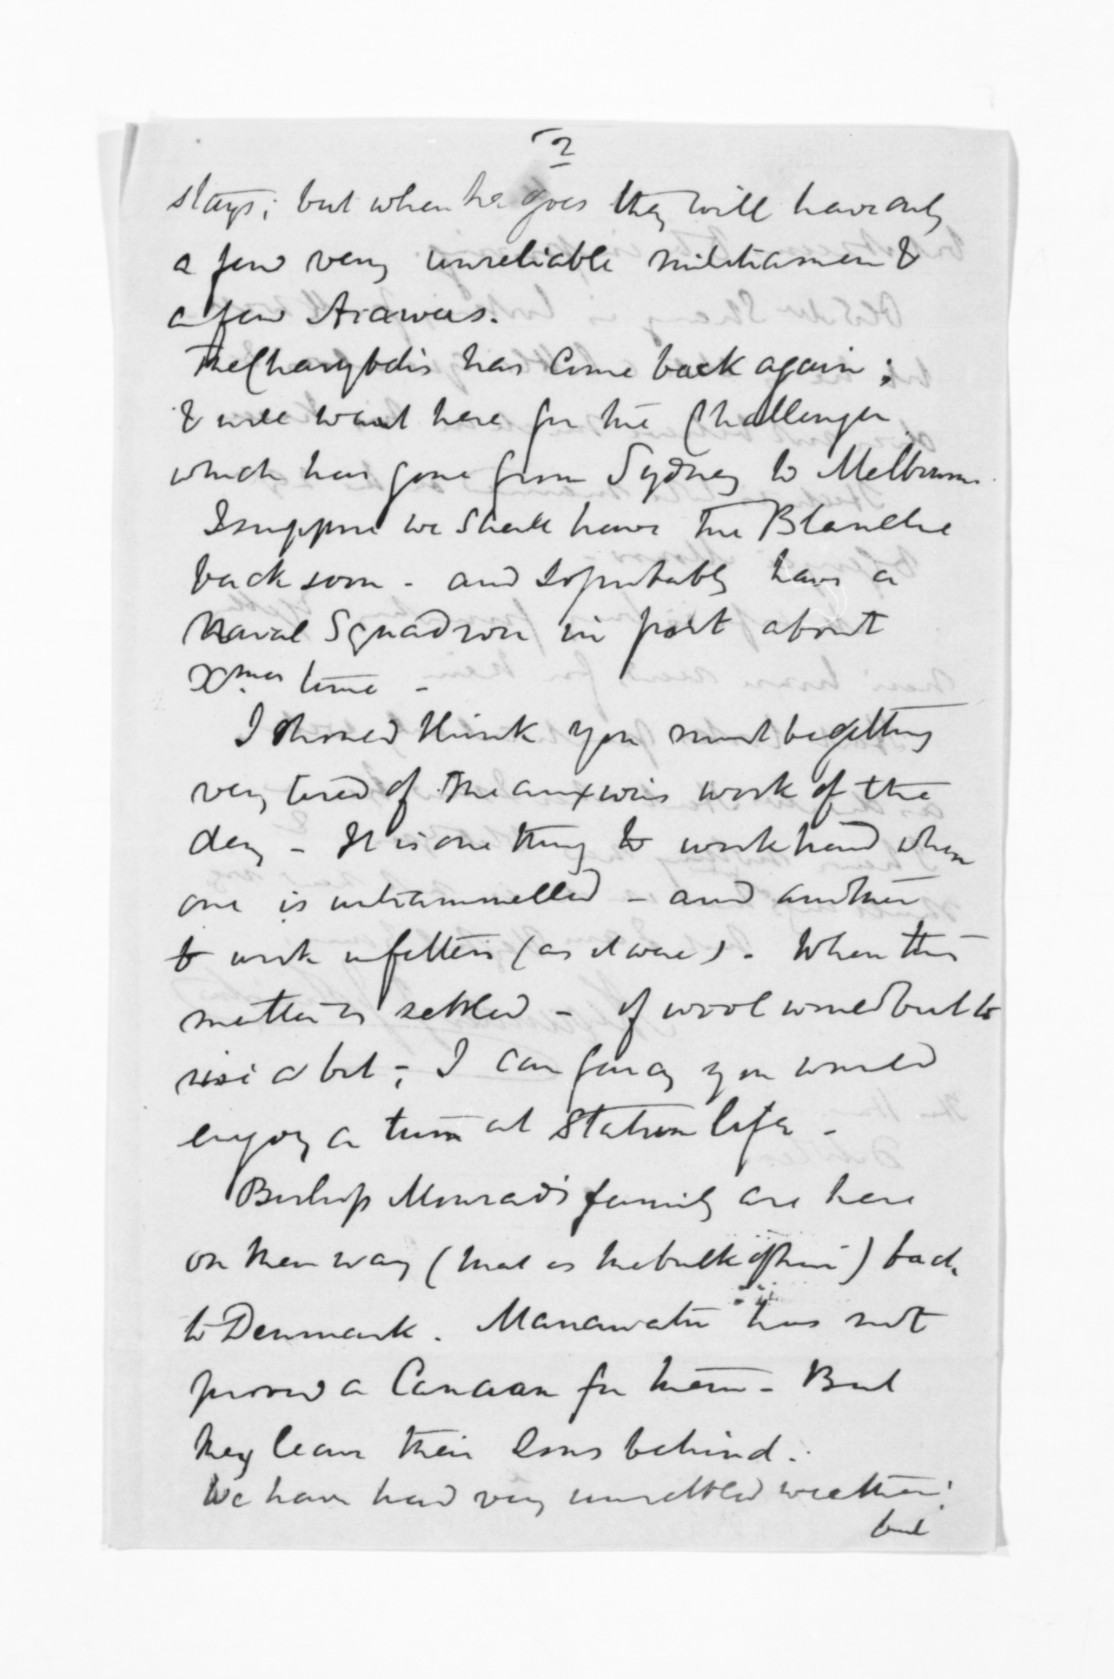 2
stays; but when he goes they will have only
a few very unreliable militiamen &
a few Arawas.
The Charybdis has come back again;
& will wait here for the Challenger
which has gone from Sydney to Melbourne.
I suppose we shall have the Blanche
back soon - and so probably have a
Naval Squadron in port about
Xmas time -
I should think you must be getting
very tired of the anxious work of the
day - It is one thing to work hard when
one is untrammelled - and another
to work in fetters (as it were). When this
matter is settled - if wool would but to
rise a bit -; I can fancy you would
enjoy a turn at Station life -
Bishop Monrad's family are here
on their way (that is the bulk of them) back
to Denmark. Manawatu has not
proved a Canaan for them - But
they leave their Sons behind.
We have had very unsettled weather;
but